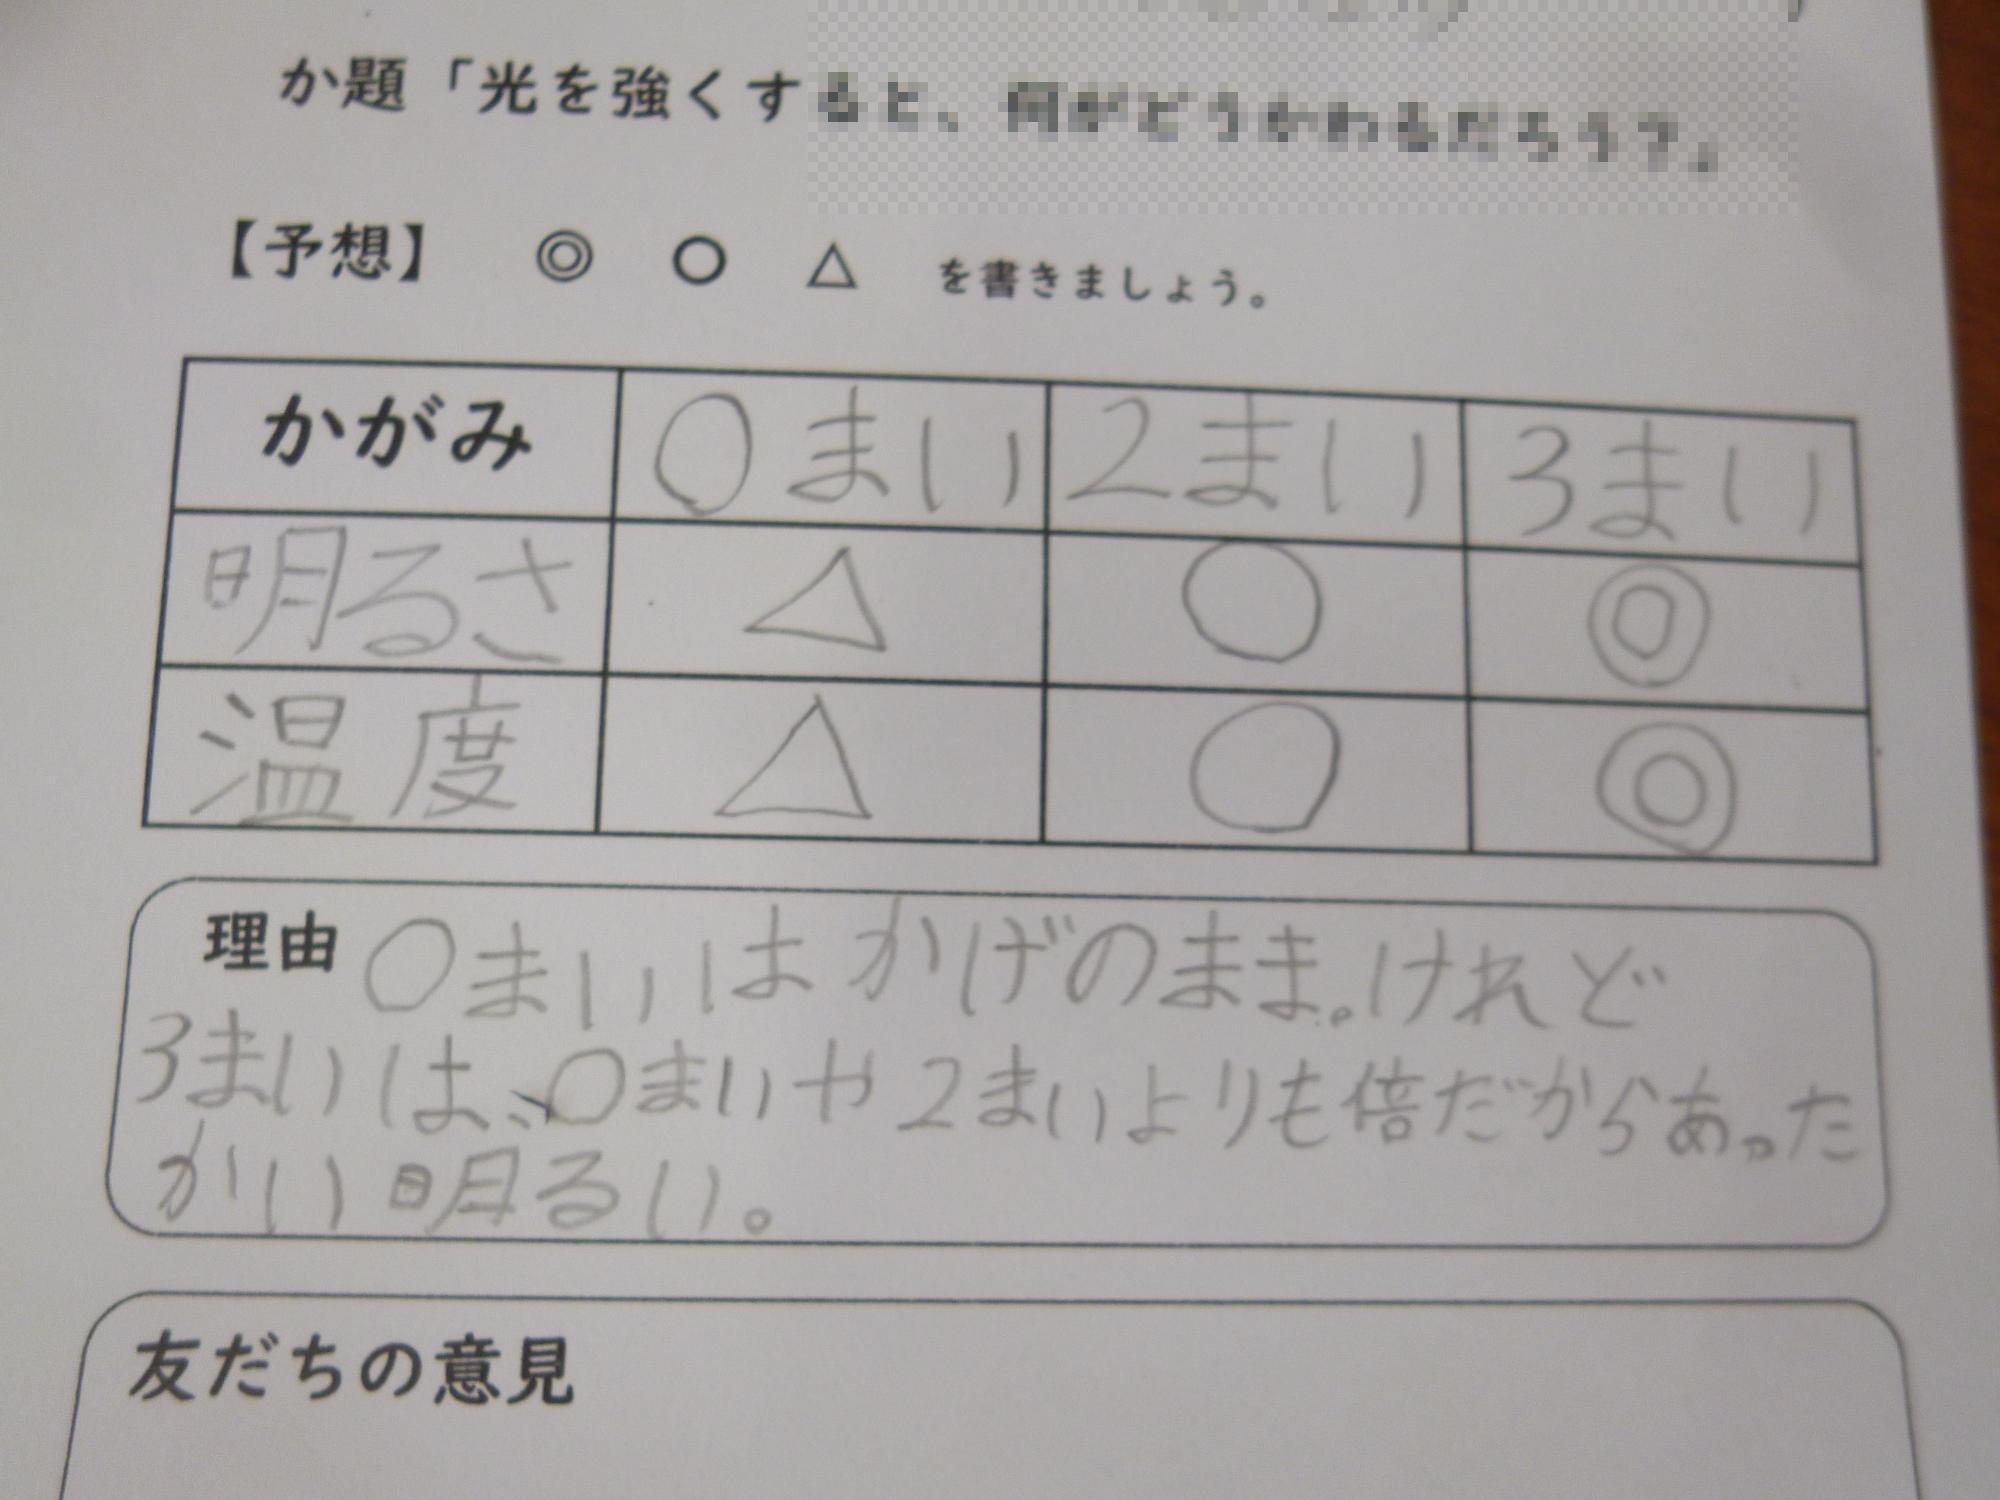 か題「光を強くすると、何がどうかわるだろう？」
【予想】 ◎ ○ △ を書きましょう。
かがみ 0まい 2まい 3まい
明るさ △ ○ ◎
温度 △ ○ ◎
理由 0まいはかげのまま。けれど
3まいは、0まいや2まいよりも倍だからあった
かい明るい。
友だちの意見